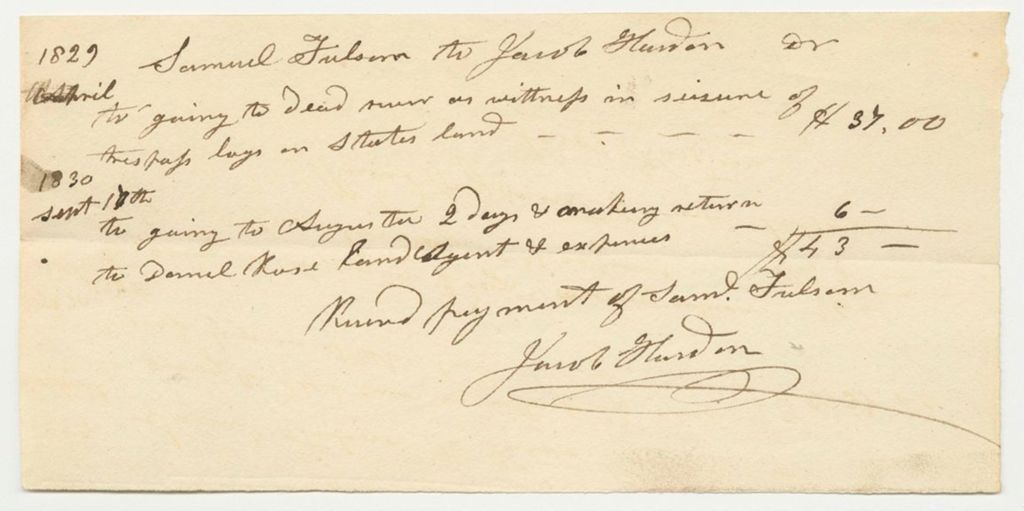 1829 Samuel Fulsom to Jacob Hardon Dr
April
to going to Dead river as wittness in seizure of
trespass logs on States land - - - - $ 37.00
1830
Sept 17th
to going to Augusta 2 days & making return
to Daniel Rose Land Agent & expenses - 6 -
$ 43 -
Recivd payment of Saml. Fulsom
Jacob Hardon